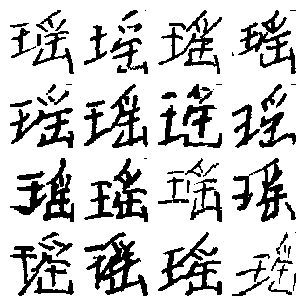 瑶瑶瑶瑶
瑶瑶瑶瑶
瑶瑶瑶瑶
瑶瑶瑶瑶